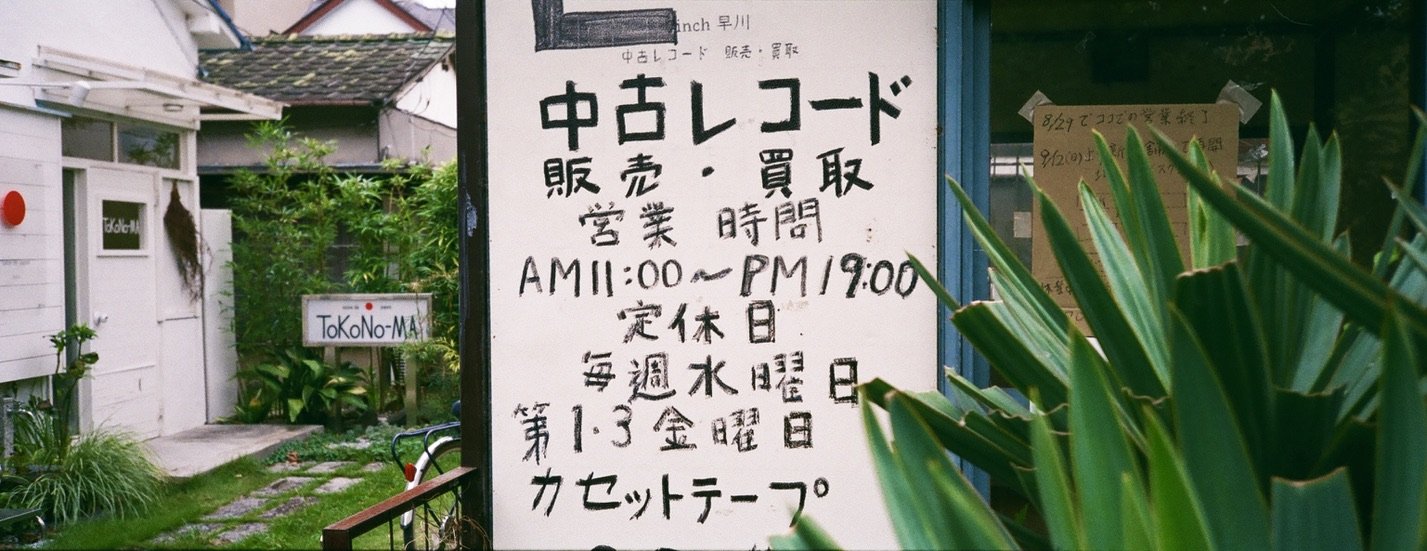 inch 早川
中古レコード 販売・買取
中古レコード
販売・買取
営業 時間
AM11:00〜PM19:00
定休日
毎週水曜日
第1・3金曜日
カセットテープ
ToKoNo-MA
ToKoNo-MA
8/29でココでの営業終了